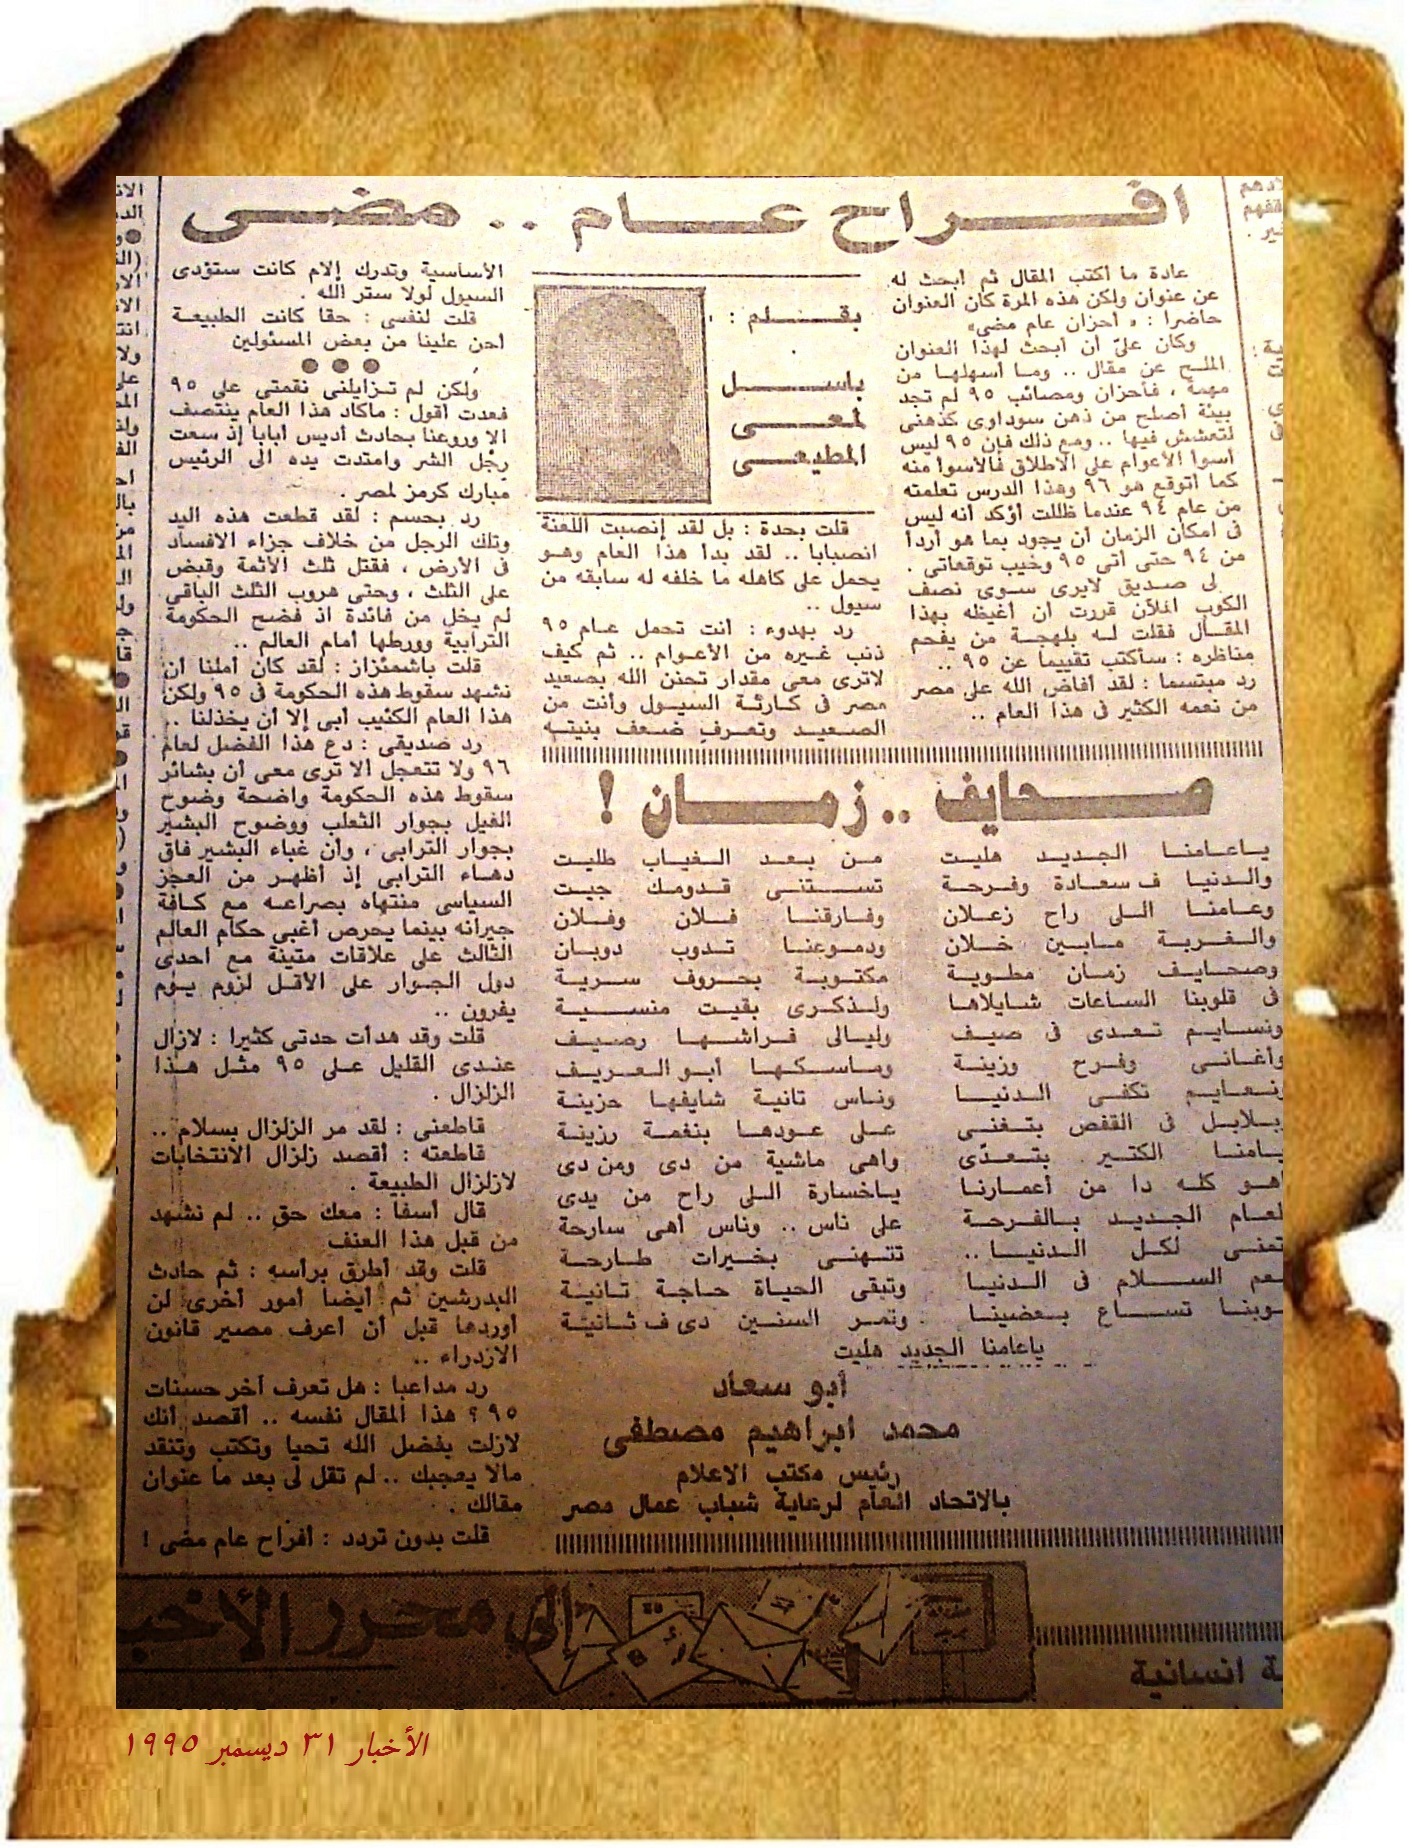 افراح عام .. مضى
بقلم :
باسل
لمعى
المطيعى
عادة ما أكتب المقال ثم أبحث له
عن عنوان ولكن هذه المرة كان العنوان
حاضرا : « أحزان عام مضى»
وكان علىّ أن أبحث لهذا العنوان
الملح عن مقال .. وما أسهلها من
مهمة ، فأحزان ومصائب ٩٥ لم تجد
بيئة أصلح من ذهن سوداوى كذهنى
لتعشش فيها .. ومع ذلك فإن ٩٥ ليس
أسوأ الأعوام على الاطلاق فالأسوأ منه
كما أتوقع هو ٩٦ وهذا الدرس تعلمته
من عام ٩٤ عندما ظللت أؤكد أنه ليس
فى امكان الزمان أن يجود بما هو أردأ
من ٩٤ حتى أتى ٩٥ وخيب توقعاتى .
لى صديق لايرى سوى نصف
الكوب الملآن قررت أن أغيظه بهذا
المقال فقلت له بلهجة من يفحم
مناظره : سأكتب تقييما عن ٩٥ ..
رد مبتسما : لقد أفاض الله على مصر
من نعمه الكثير فى هذا العام ..
قلت بحدة : بل لقد إنصبت اللعنة
انصبابا .. لقد بدأ هذا العام وهو
يحمل على كاهله ما خلفه له سابقه من
سيول ..
رد بهدوء : أنت تحمل عام ٩٥
ذنب غيره من الأعوام .. ثم كيف
لاترى معى مقدار تحنن الله بصعيد
مصر فى كارثة السيول وأنت من
الصعيد وتعرف ضعف بنيته
الأساسية وتدرك إلام كانت ستؤدى
السيول لولا ستر الله .
قلت لنفسى : حقا كانت الطبيعة
أحن علينا من بعض المسئولين
● ● ●
ولكن لم تزايلنى نقمتى على ٩٥
فعدت أقول : ماكاد هذا العام ينتصف
إلا وروعنا بحادث أديس أبابا إذ سعت
رجل الشر وامتدت يده الى الرئيس
مبارك كرمز لمصر .
رد بحسم : لقد قطعت هذه اليد
وتلك الرجل من خلاف جزاء الافساد
فى الأرض ، فقتل ثلث الأثمة وقبض
على الثلث ، وحتى هروب الثلث الباقى
لم يخل من فائدة اذ فضح الحكومة
الترابية وورطها أمام العالم ..
قلت باشمئزاز : لقد كان أملنا أن
نشهد سقوط هذه الحكومة فى ٩٥ ولكن
هذا العام الكئيب أبى إلا أن يخذلنا ..
رد صديقى : دع هذا الفضل لعام
٩٦ ولا تتعجل ألا ترى معى أن بشائر
سقوط هذه الحكومة واضحة وضوح
الفيل بجوار الثعلب ووضوح البشير
بجوار الترابى ، وأن غباء البشير فاق
دهاء الترابى إذ أظهر من العجز
السياسى منتهاه بصراعه مع كافة
جيرانه بينما يحرص أغبى حكام العالم
الثالث على علاقات متينة مع احدى
دول الجوار على الأقل لزوم يوم
يفرون ..
قلت وقد هدأت حدتى كثيرا : لازال
عندى القليل على ٩٥ مثل هذا
الزلزال .
قاطعنى : لقد مر الزلزال بسلام ..
قاطعته : أقصد زلزال الانتخابات
لازلزال الطبيعة .
قال أسفا : معك حق .. لم نشهد
من قبل هذا العنف
قلت وقد أطرق برأسه : ثم حادث
البدرشين ثم أيضا أمور أخرى لن
أوردها قبل أن أعرف مصير قانون
الازدراء ..
رد مداعبا : هل تعرف آخر حسنات
٩٥ ؟ هذا المقال نفسه .. أقصد أنك
لازلت بفضل الله تحيا وتكتب وتنقد
مالا يعجبك .. لم تقل لى بعد ما عنوان
مقالك .
قلت بدون تردد : أفراح عام مضى !
صحايف .. زمان !
ياعامنا الجديد هليت من بعد الغياب طليت
والدنيا ف سعادة وفرحة تستنى قدومك جيت
وعامنا اللى راح زعلان وفارقنا فلان وفلان
والغربة مابين خلان ودموعنا تدوب دوبان
وصحايف زمان مطوية مكتوبة بحروف سرية
فى قلوبنا الساعات شايلاها ولذكرى بقيت منسية
ونسايم تعدى فى صيف وليالى فراشها رصيف
وأغانى وفرح وزينة وماسكها أبو العريف
ونعايم تكفى الدنيا وناس تانية شايفها حزينة
وبلابل فى القفص بتغنى على عودها بنغمة رزينة
يامنا الكتير بتعدّى واهى ماشية من دى ومن دى
أهو كله دا من أعمارنا ياخسارة اللى راح من يدى
لعام الجديد بالفرحة على ناس .. وناس أهى سارحة
تمنى لكل الدنيا .. تتهنى بخيرات طارحة
عم السلام فى الدنيا وتبقى الحياة حاجة تانية
وبنا تساع بعضينا وتمر السنين دى ف ثانية
ياعامنا الجديد هليت
أبو سعاد
محمد ابراهيم مصطفى
رئيس مكتب الاعلام
بالاتحاد العام لرعاية شباب عمال مصر
إلى محرر الأخب
ة انسانية
الأخبار ٣١ ديسمبر ١٩٩٥